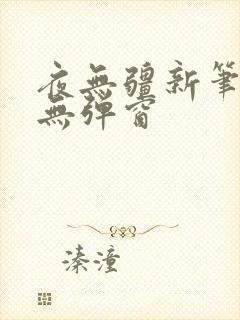 夜無疆新筆
無彈窗
溱潼